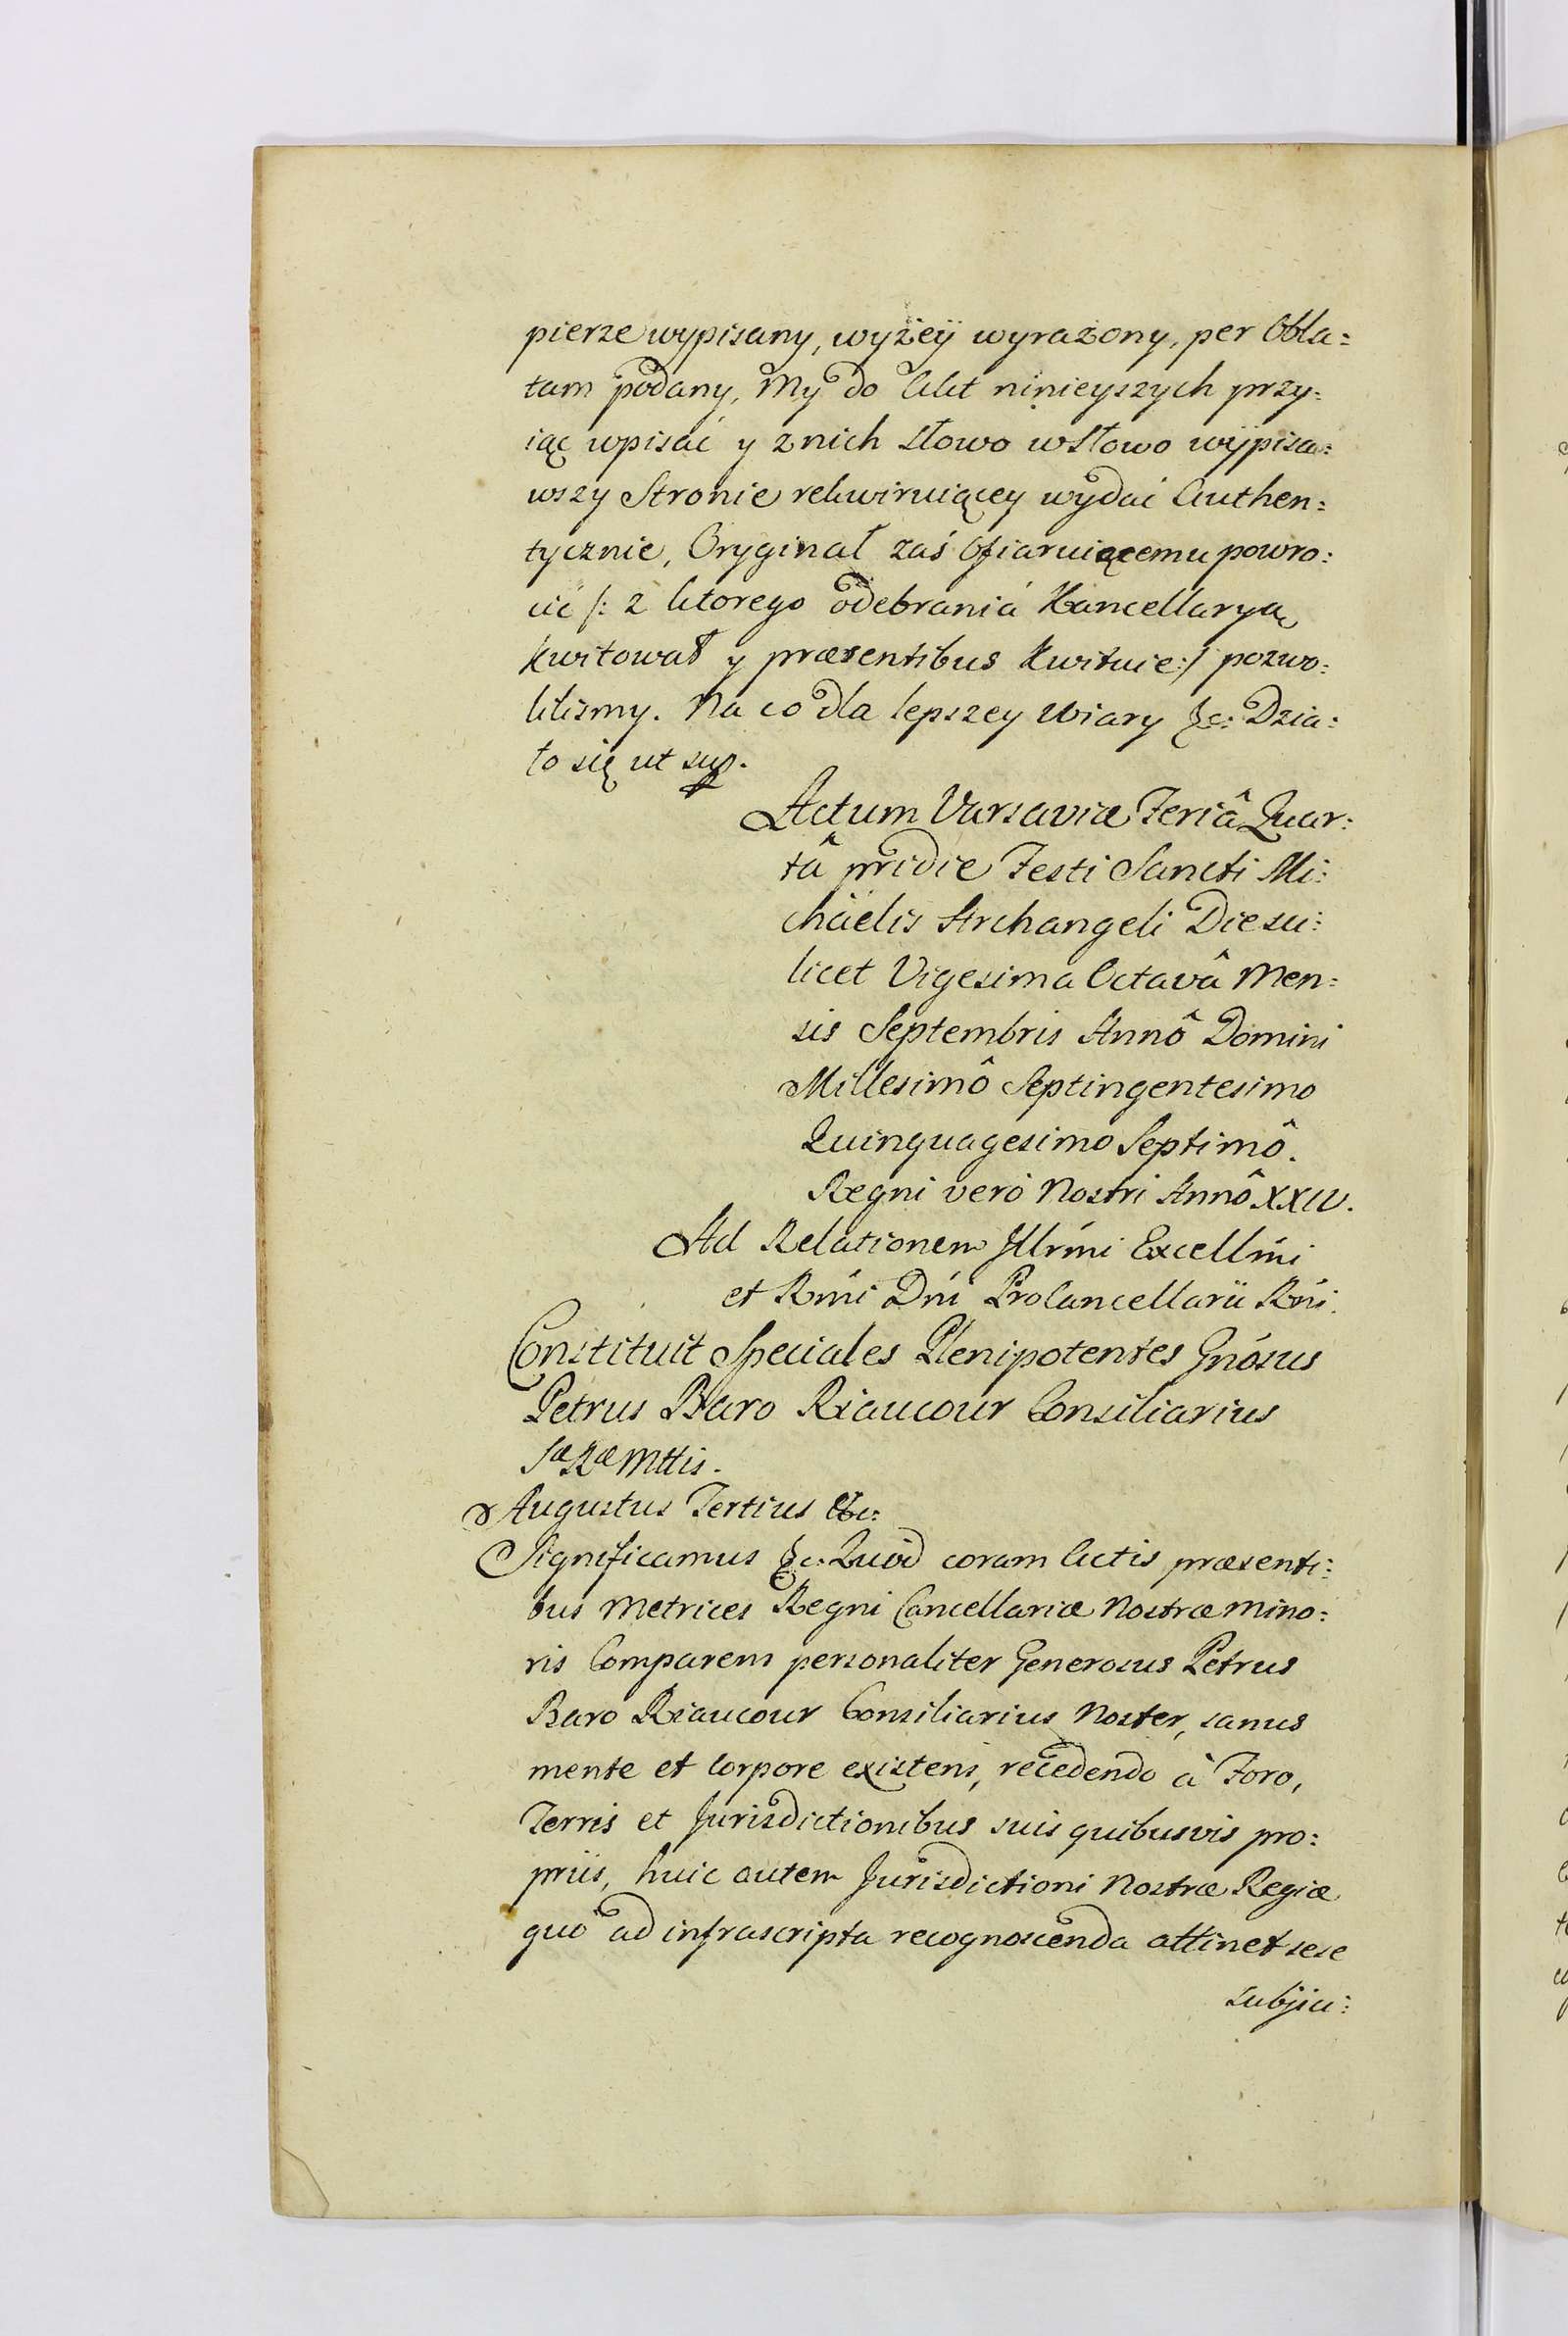 pierze wypisany, wyżey wyrażony, per Obla=
tam podany, My do Akt ninieyszych przy=
iąć wpisać y z nich słowo w słowo wypisa=
wszy Stronie rekwiruiącey wydać Authen=
tycznie, Oryginał zaś Ofiaruiącemu powro=
cić /: z ktorego odebrania Kancellaryą
kwitował y præsentibus kwituie :/ pozwo=
lilismy. Na co dla lepszey Wiary &c: Dzia=
ło się ut sup.
Actum Varsaviæ Feriâ Quar=
tâ pridie Festi Sancti Mi=
chaëlis Archangeli Die sci=
licet Vigesima Octavâ Men=
sis Septembris Annô Domini
Millesimô Septingentesimo
Quinquagesimo Septimô.
Regni verò Nostri Annô XXIV.
Ad Relationem Illrmi Excellmi
et Rmi Dni ProCancellarii Rni.
Constituit Speciales Plenipotentes Gnosus
Petrus Baro Riaucour Consiliarius
Sæ Ræ Mttis.
Augustus Tertius &c:
Significamus &c. Quod coram Actis præsenti=
bus Metrices Regni Cancellariæ Nostræ Mino=
ris Comparens personaliter Generosus Petrus
Baro Riaucour Consiliarius Noster, sanus
mente et Corpore existens, recedendo à Foro,
Terris et Jurisdictionibus suis quibusvis pro=
priis, huic autem Jurisdictioni Nostræ Regiæ
quo ad infrascripta recognoscenda attinet sese
subjici=